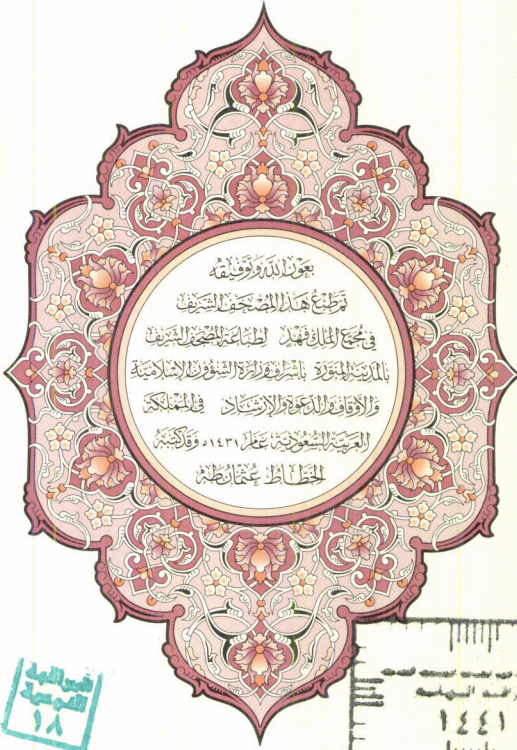 بعون الله وتوفيقه
تم طبع هذا المصحف الشريف
في مجمع الملك فهد لطباعة المصحف الشريف
بالمدينة المنورة بإشراف وزارة الشؤون الإسلامية
والأوقاف والدعوة والإرشاد في المملكة
العربية السعودية عام ١٤٣١ه وقد كتبه
الخطاط عثمان طه
١٨
١٤٤١